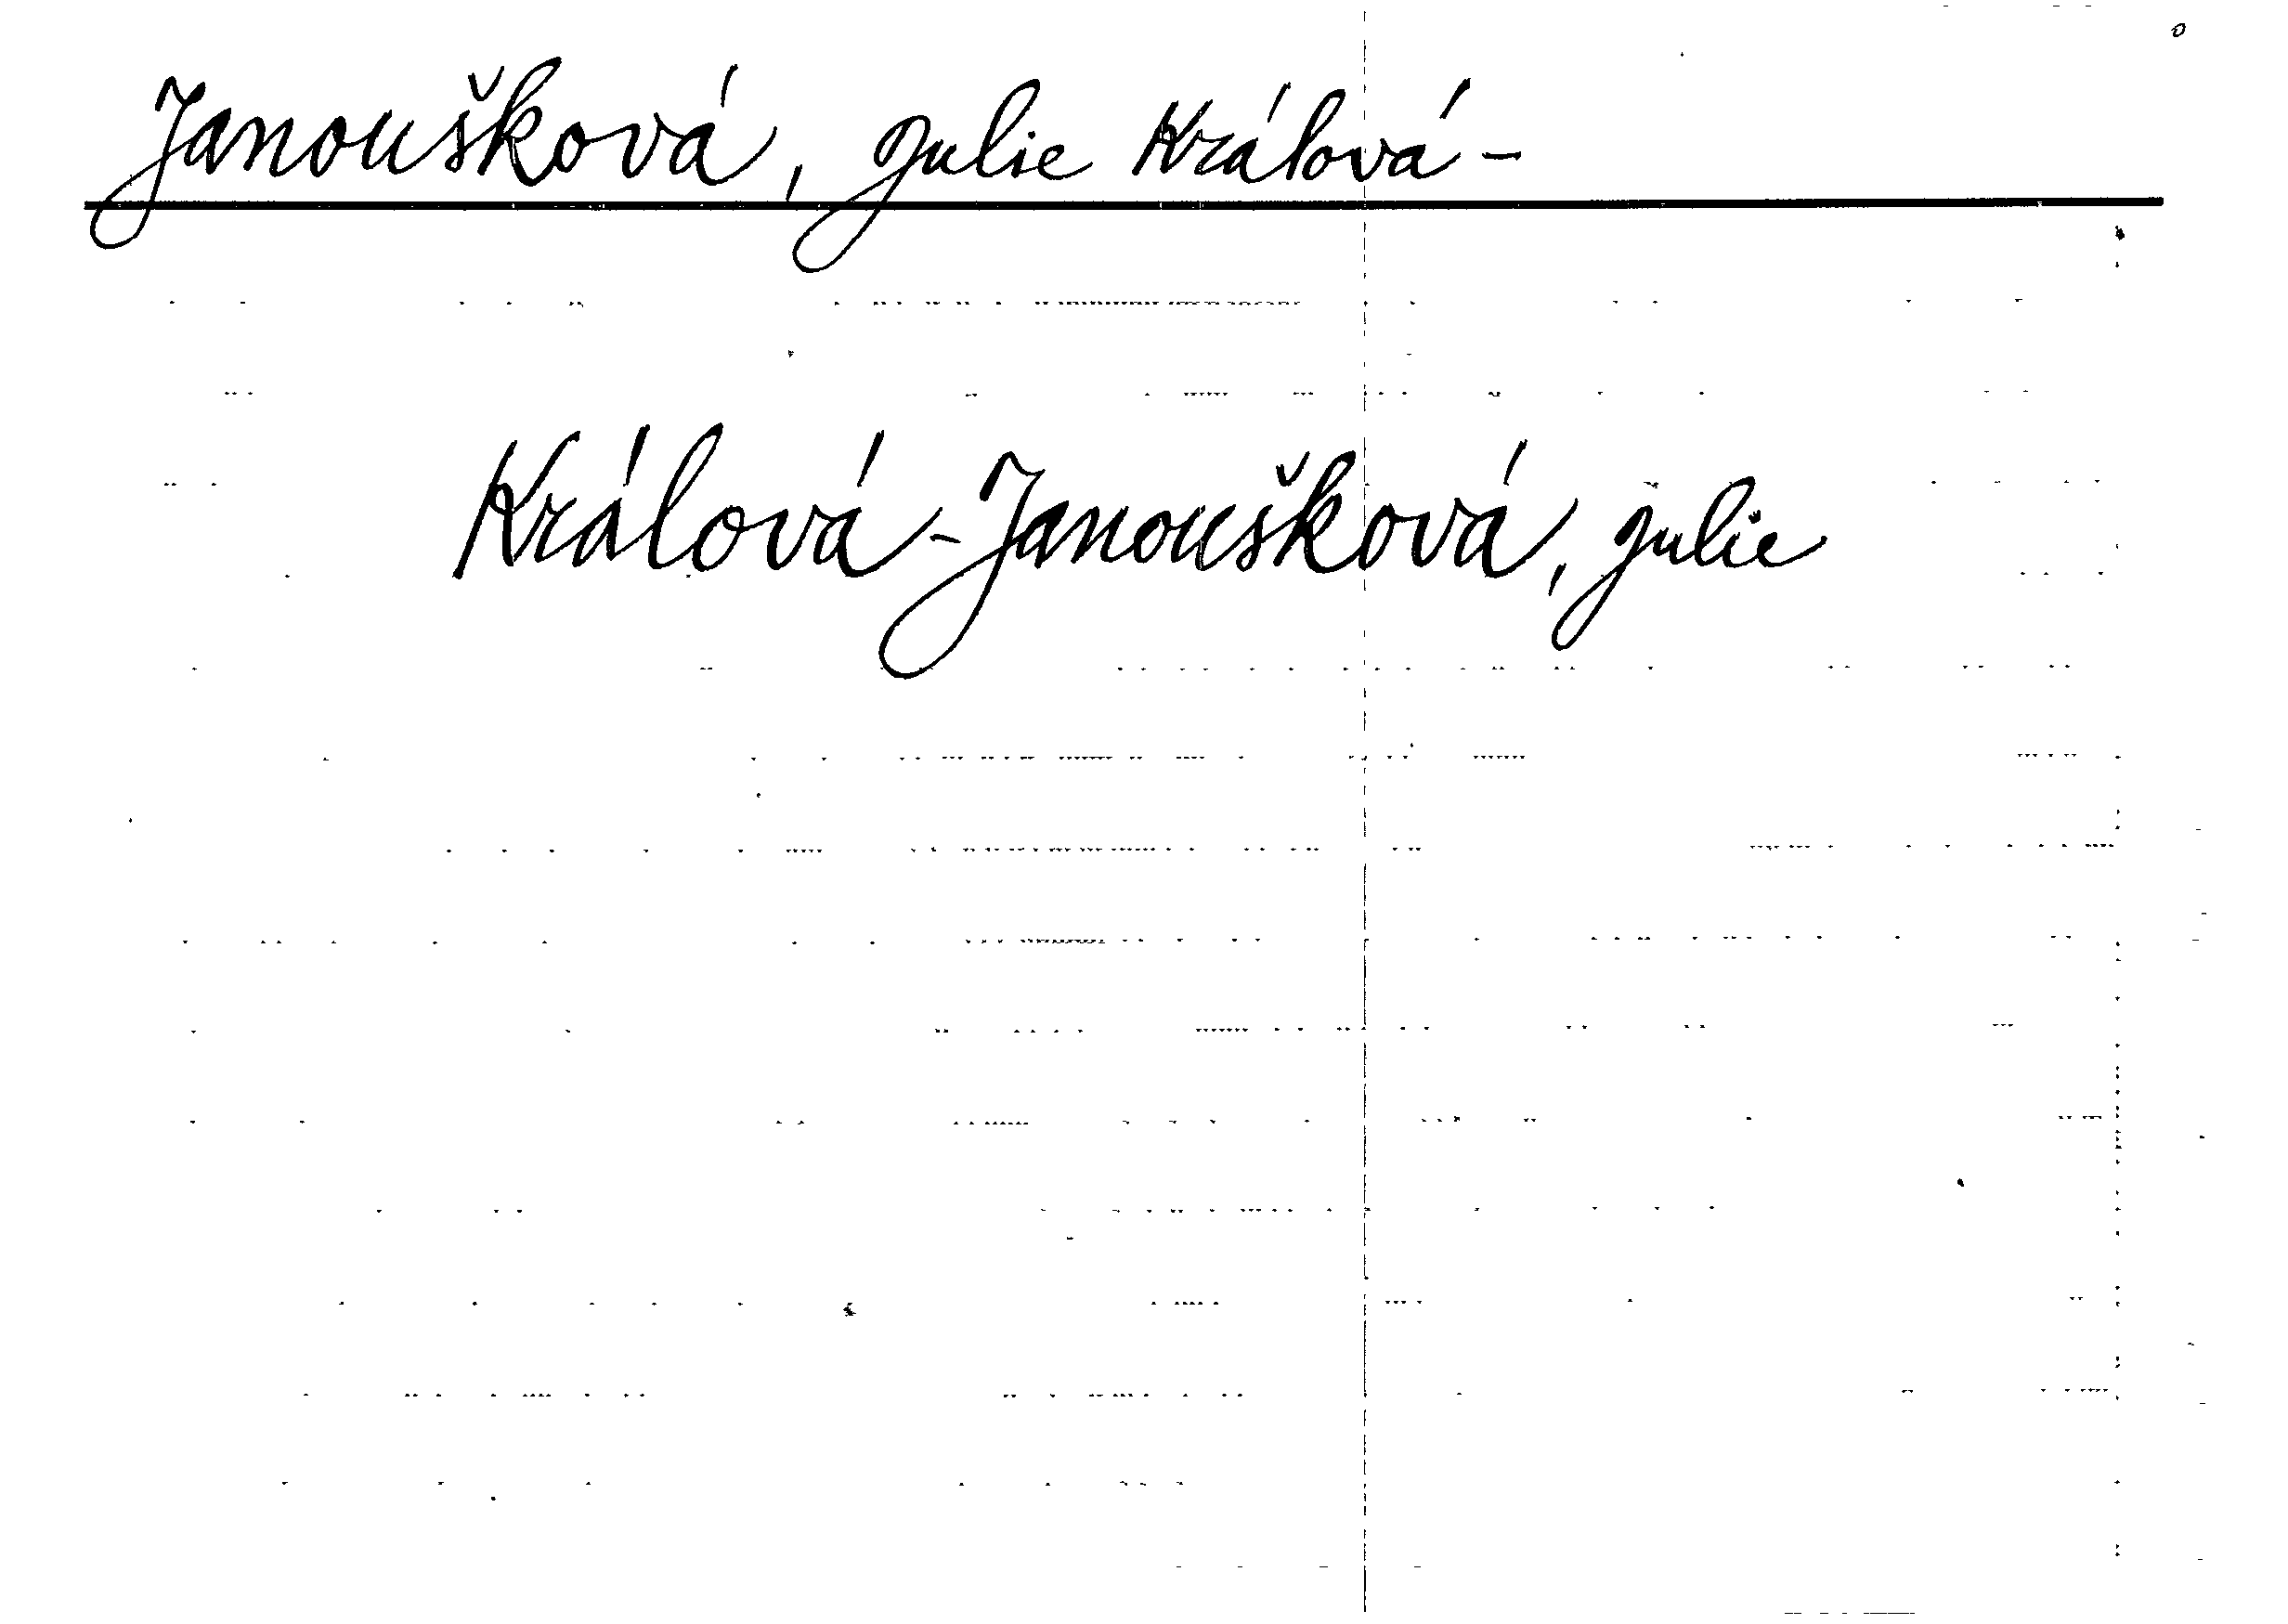 Janoušková, Julie Králová-
Králová-Janoušková, Julie